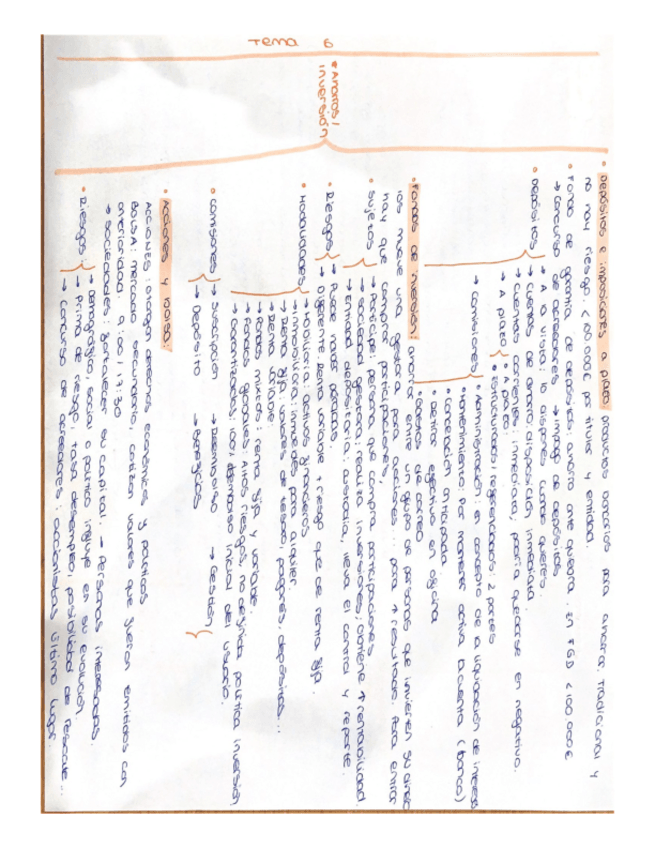 Tema 6
* Ahorros/
inversión
• Depósitos e imposiciones a plazo: productos bancarios para ahorrar. Tradicional y
no hay riesgo. < 100.000€ por titular y entidad.
• Fondo de garantía de depósitos: ahorro ante quiebra. En FGD < 100.000€
→ concurso de acreedores → impago de depósitos
• Depósitos
→ A la vista: lo dispones cuando quieres.
→ cuentas de ahorro: disposición inmediata.
→ cuentas corrientes: inmediata, podría quedarse en negativo.
→ A plazo
• A plazo
• estructurados/referenciados: 2 partes
→ comisiones
• Administración: en concepto de la liquidación de intereses
• mantenimiento: por mantener activa la cuenta (banco)
• cancelación anticipada
• Retirar efectivo en oficina
• Gastos de correo
• Fondos de inversión: ahorrar entre un grupo de personas que invierten su dinero
los mueve una gestora para acciones... para ↑ resultados. Para entrar
hay que comprar participaciones.
• sujetos
→ Partícipe: persona que compra participaciones
→ sociedad gestora: realiza inversiones; obtiene ↑ rentabilidad.
→ Entidad depositaria: custodia, lleva el control y reporte.
• Riesgos
→ Puede haber pérdidas.
→ Diferente. Renta variable ↑ riesgo que de renta fija.
• Modalidades
→ Mobiliaria: activos financieros
→ Inmobiliaria: inmuebles para alquiler.
→ Renta fija: valores de tesoro, pagarés, depósitos...
→ Renta variable.
→ Fondos mixtos: renta fija y variable.
→ Fondos globales: Altos riesgos, no definida política inversión
→ Garantizados: 100% desembolso inicial del usuario.
• comisiones
→ suscripción → Reembolso → Gestión
→ Depósito
• Acciones y bolsa:
ACCIONES: otorgan derechos económicos y políticos
BOLSA: mercado secundario, cotizan valores que fueron emitidos con
anterioridad. 9:00 / 17:30
→ sociedades: fortalecer su capital. → Personas interesadas.
• Riesgos
→ Demográfico, social o político influye en su evolución
→ Prima de riesgo, tasa desempleo, posibilidad de rescate...
→ Concurso de acreedores: accionistas último lugar.